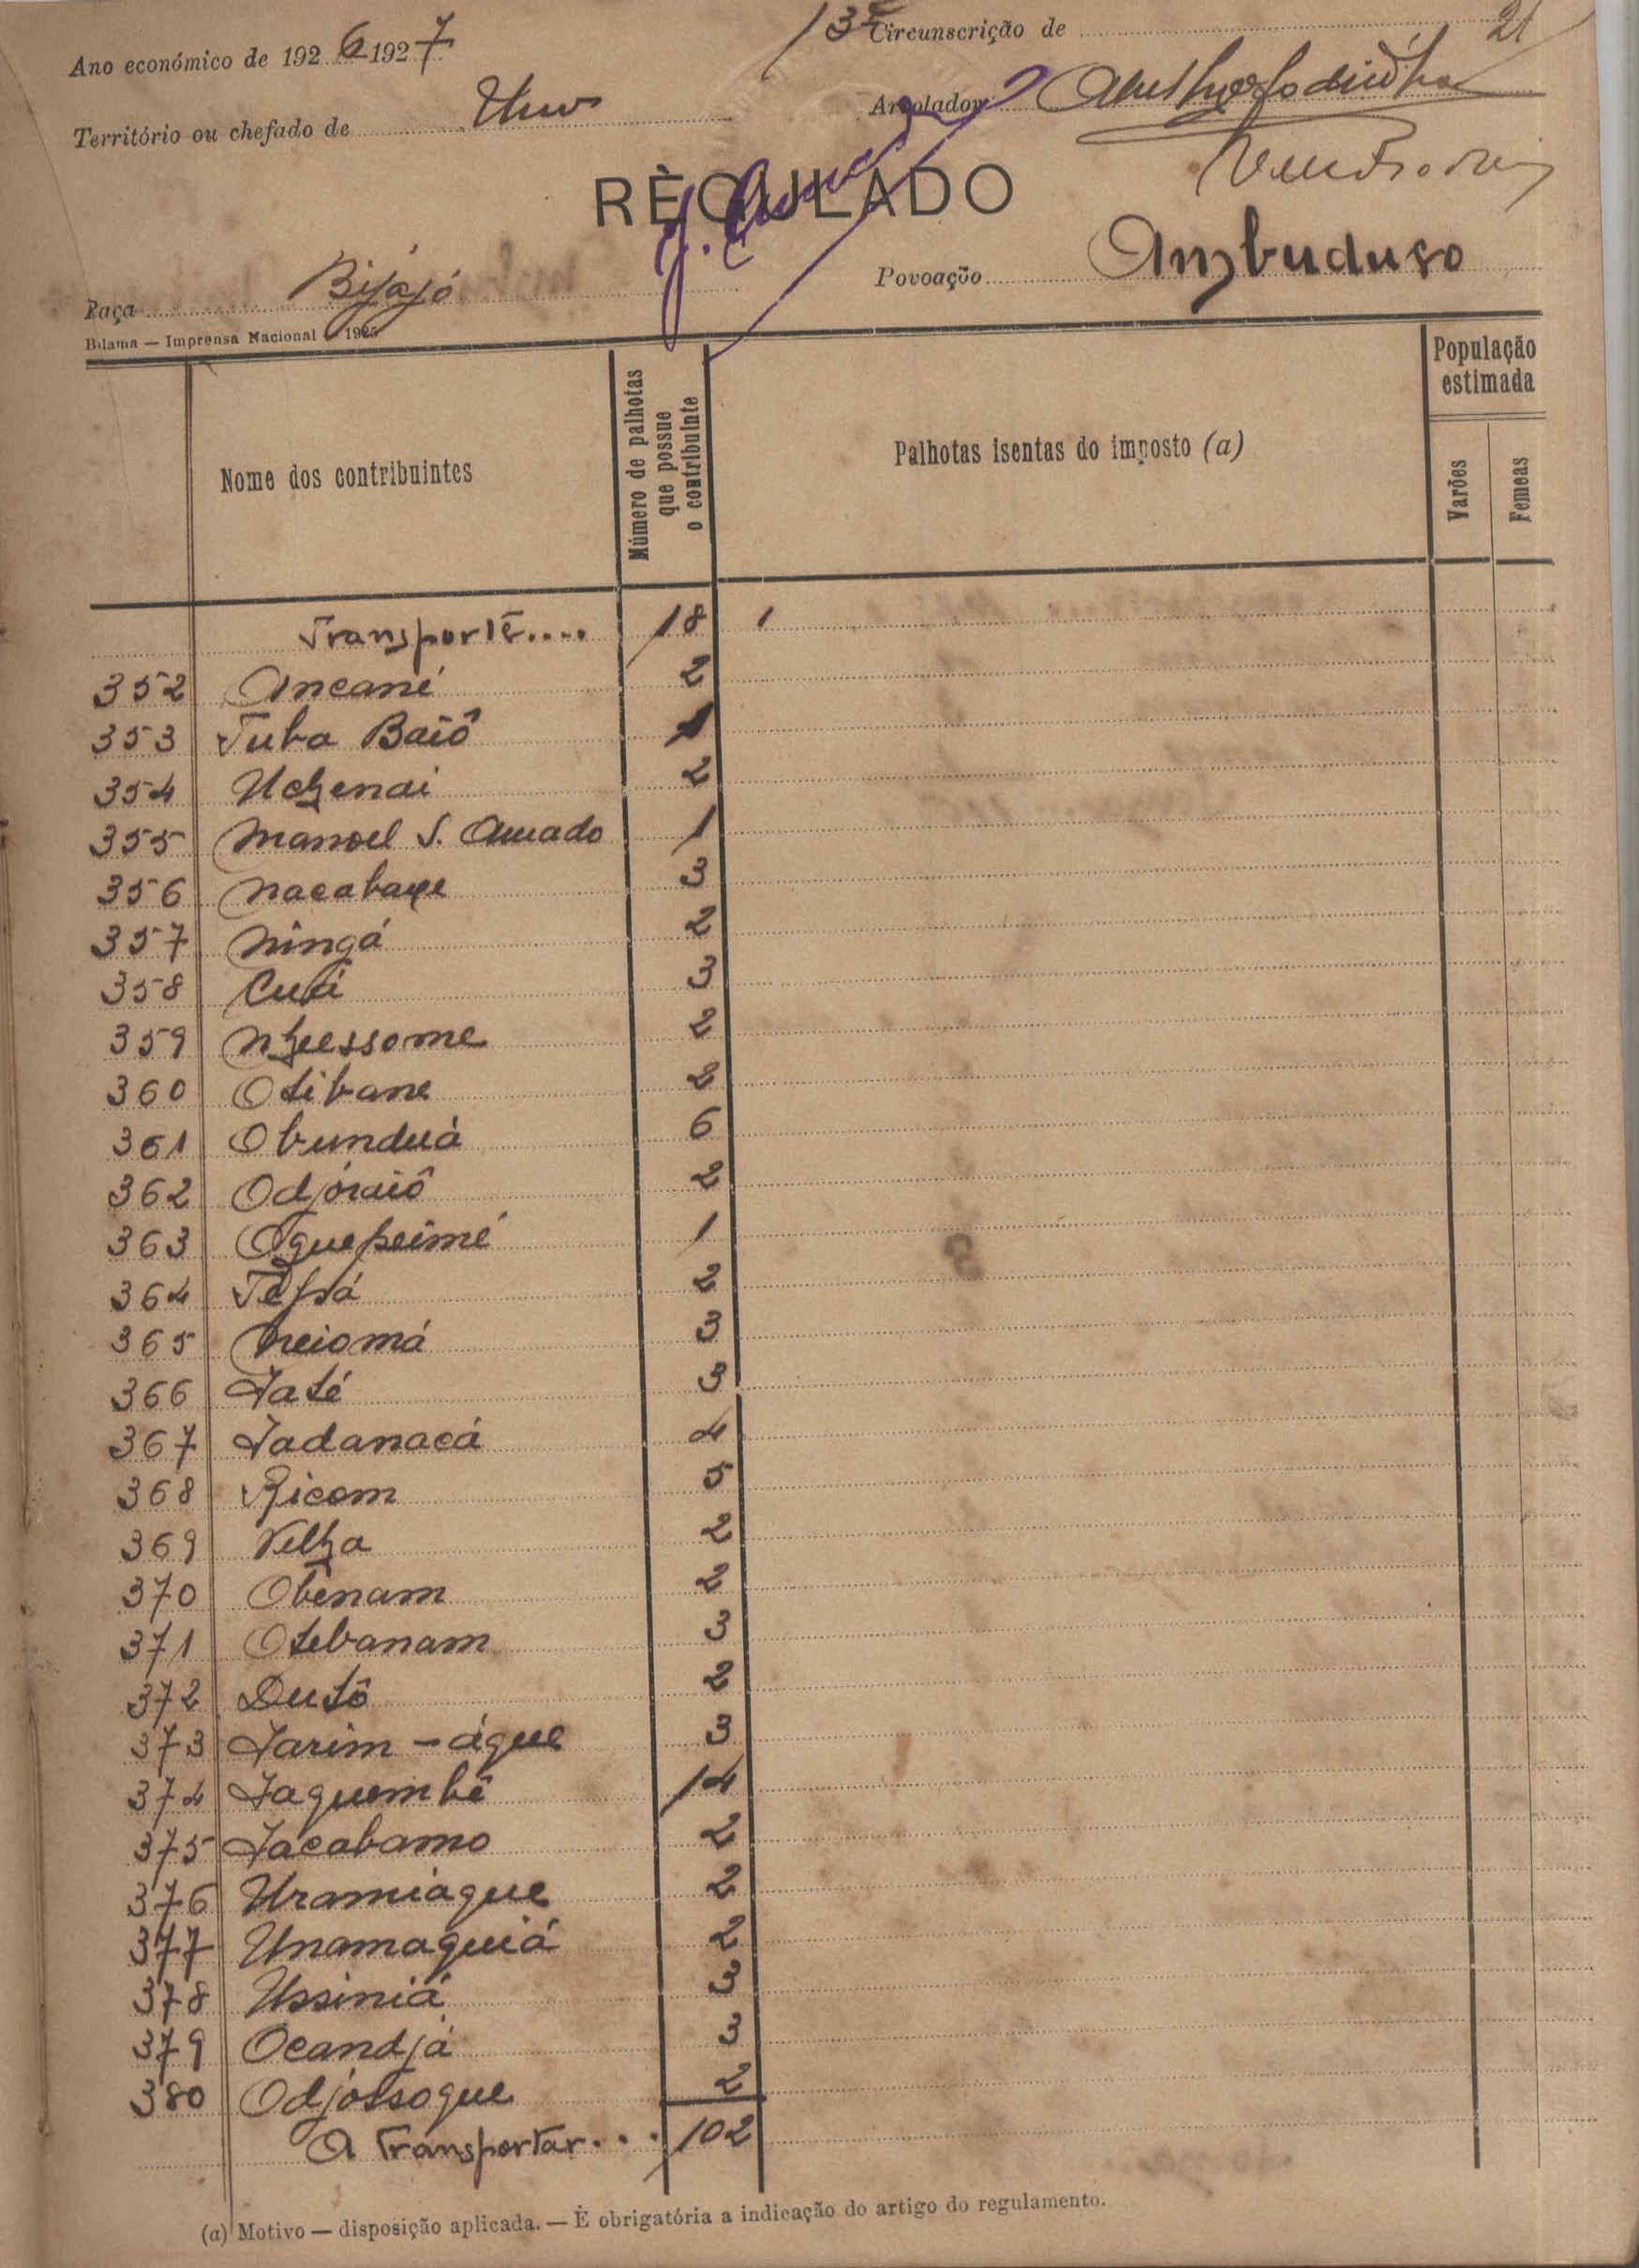 Ano económico de 1926 1927
13ª Circunscrição de 21
Território ou chefado de Uno
Arrolador
RÈGULADO
Raça Bijájó
Povoação Anzbuduso
Bolama — Imprensa Nacional — 1925
Nome dos contribuintes
Número de palhotas que possue o contribuinte
Palhotas isentas do imposto (a)
População estimada
Varões
Femeas
Transporte.... 18 1
352 Ancané 2
353 Tuba Baiô 1
354 Uchenai 2
355 Manoel S. Amado 1
356 Nacabaque 3
357 Ningá 2
358 3
359 Nhuessome 2
360 Otibane 2
361 Obunduá 6
362 Odjóraiô 2
363 Oguepeimé 1
364 2
365 Neiomá 3
366 Jaté 3
367 Jadanacá 4
368 Ricom 5
369 Velha 2
370 Obenam 2
371 Otebanam 3
372 Dutô 2
373 Jarim - águe 3
374 Jaquembê 14
375 Jacabamo 2
376 Uramiague 2
377 Unamaquiá 2
378 Ussiniá 3
379 Ocandjá 3
380 Odjossoque 2
A Transportar... 102
(a) Motivo — disposição aplicada. — È obrigatória a indicação do artigo do regulamento.